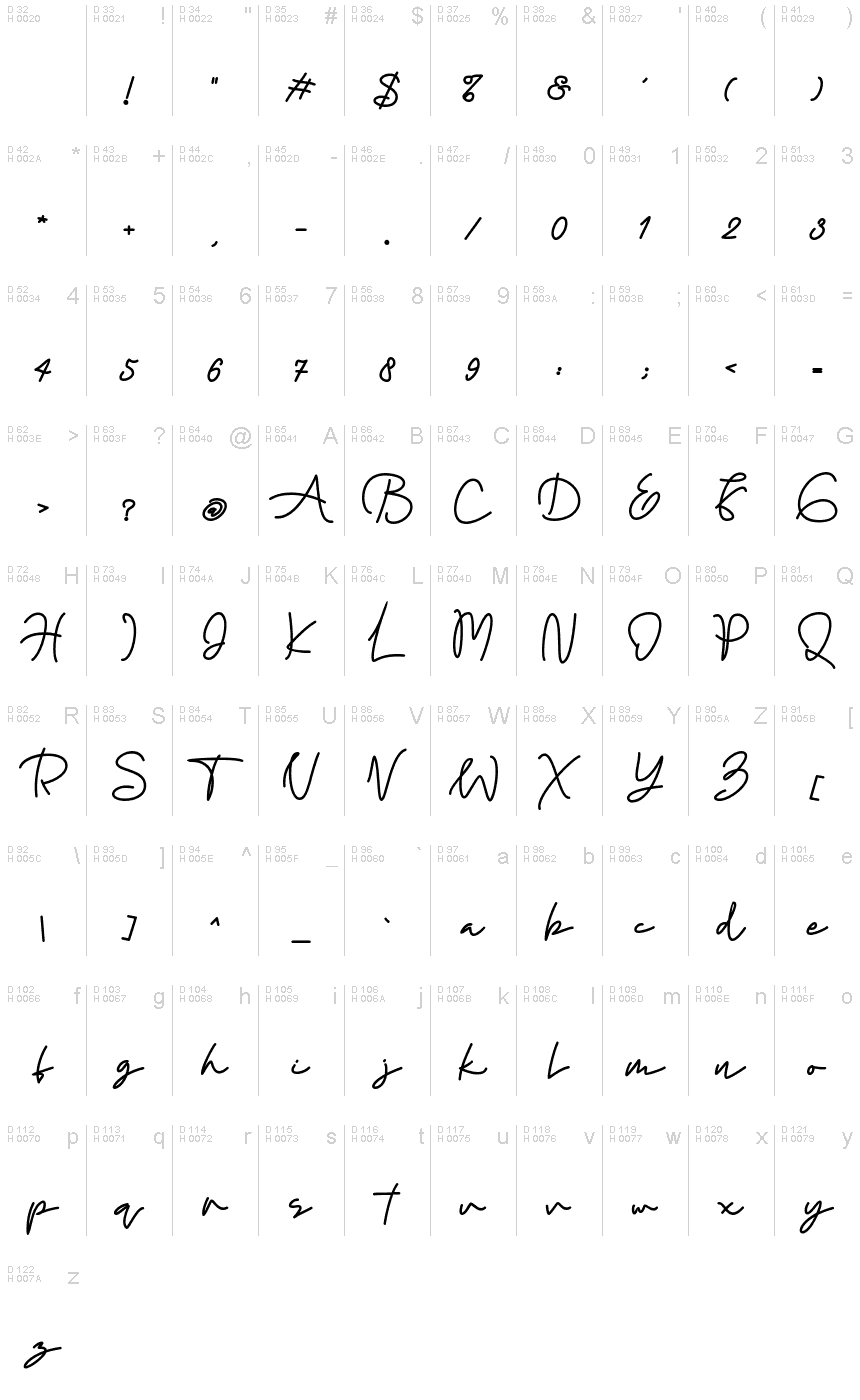 D 32 H 0020 D 33 H 0021 ! D 34 H 0022 " D 35 H 0023 # D 36 H 0024 $ D 37 H 0025 % D 38 H 0026 & D 39 H 0027 ' D 40 H 0028 ( D 41 H 0029 )
! " # $ % & ' ( )
D 42 H 002A * D 43 H 002B + D 44 H 002C , D 45 H 002D - D 46 H 002E . D 47 H 002F / D 48 H 0030 0 D 49 H 0031 1 D 50 H 0032 2 D 51 H 0033 3
* + , - . / 0 1 2 3
D 52 H 0034 4 D 53 H 0035 5 D 54 H 0036 6 D 55 H 0037 7 D 56 H 0038 8 D 57 H 0039 9 D 58 H 003A : D 59 H 003B ; D 60 H 003C < D 61 H 003D =
4 5 6 7 8 9 : ; < =
D 62 H 003E > D 63 H 003F ? D 64 H 0040 @ D 65 H 0041 A D 66 H 0042 B D 67 H 0043 C D 68 H 0044 D D 69 H 0045 E D 70 H 0046 F D 71 H 0047 G
> ? @ A B C D E F G
D 72 H 0048 H D 73 H 0049 I D 74 H 004A J D 75 H 004B K D 76 H 004C L D 77 H 004D M D 78 H 004E N D 79 H 004F O D 80 H 0050 P D 81 H 0051 Q
H I J K L M N O P Q
D 82 H 0052 R D 83 H 0053 S D 84 H 0054 T D 85 H 0055 U D 86 H 0056 V D 87 H 0057 W D 88 H 0058 X D 89 H 0059 Y D 90 H 005A Z D 91 H 005B [
R S T U V W X Y Z [
D 92 H 005C \ D 93 H 005D ] D 94 H 005E ^ D 95 H 005F _ D 96 H 0060 ` D 97 H 0061 a D 98 H 0062 b D 99 H 0063 c D 100 H 0064 d D 101 H 0065 e
\ ] ^ _ ` a b c d e
D 102 H 0066 f D 103 H 0067 g D 104 H 0068 h D 105 H 0069 i D 106 H 006A j D 107 H 006B k D 108 H 006C l D 109 H 006D m D 110 H 006E n D 111 H 006F o
f g h i j k l m n o
D 112 H 0070 p D 113 H 0071 q D 114 H 0072 r D 115 H 0073 s D 116 H 0074 t D 117 H 0075 u D 118 H 0076 v D 119 H 0077 w D 120 H 0078 x D 121 H 0079 y
p q r s t u v w x y
D 122 H 007A z
z